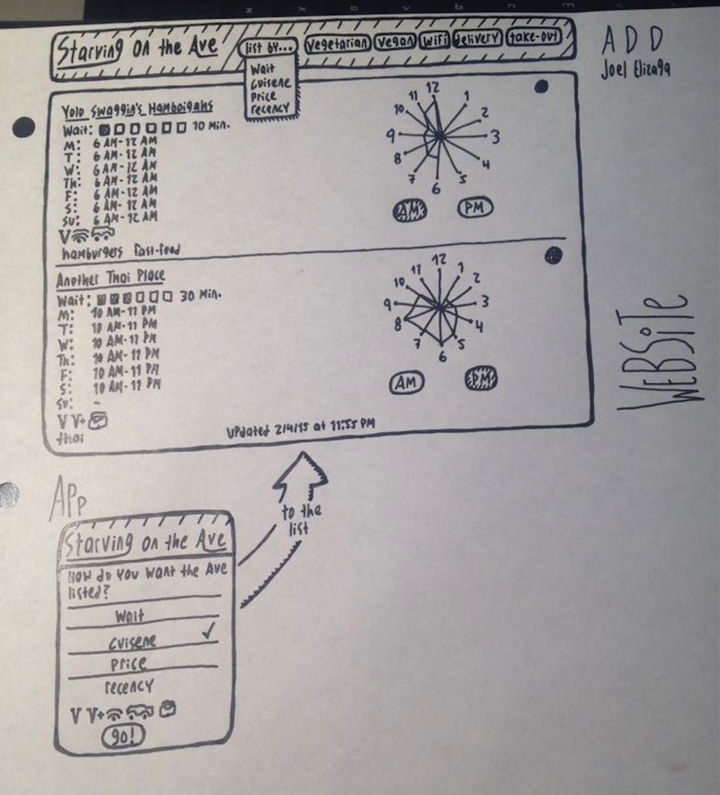 ADD
Joel Elizaga
Starving on the Ave
list by...
vegetarian
vegan
wifi
delivery
take-out
Wait
cuisene
Price
recency
Yolo Swaggin's Hamboigahs
Wait: 10 Min.
M: 6 AM-12 AM
T: 6 AM-12 AM
W: 6 AM-12 AM
Th: 6 AM-12 AM
F: 6 AM-12 AM
S: 6 AM-12 AM
SU: 6 AM-12 AM
V
hamburgers fast-food
12
1
2
3
4
5
6
7
8
9
10
11
AM
PM
Another Thai Place
Wait: 30 Min.
M: 10 AM-11 PM
T: 10 AM-11 PM
W: 10 AM-11 PM
Th: 10 AM-11 PM
F: 10 AM-11 PM
S: 10 AM-11 PM
SU: -
V V+
thai
12
1
2
3
4
5
6
7
8
9
10
11
AM
PM
updated 2/4/15 at 11:55 PM
WEBSiTe
APP
to the
list
Starving on the Ave
How do you want the Ave
listed?
Wait
cuisene
Price
recency
V V+
go!